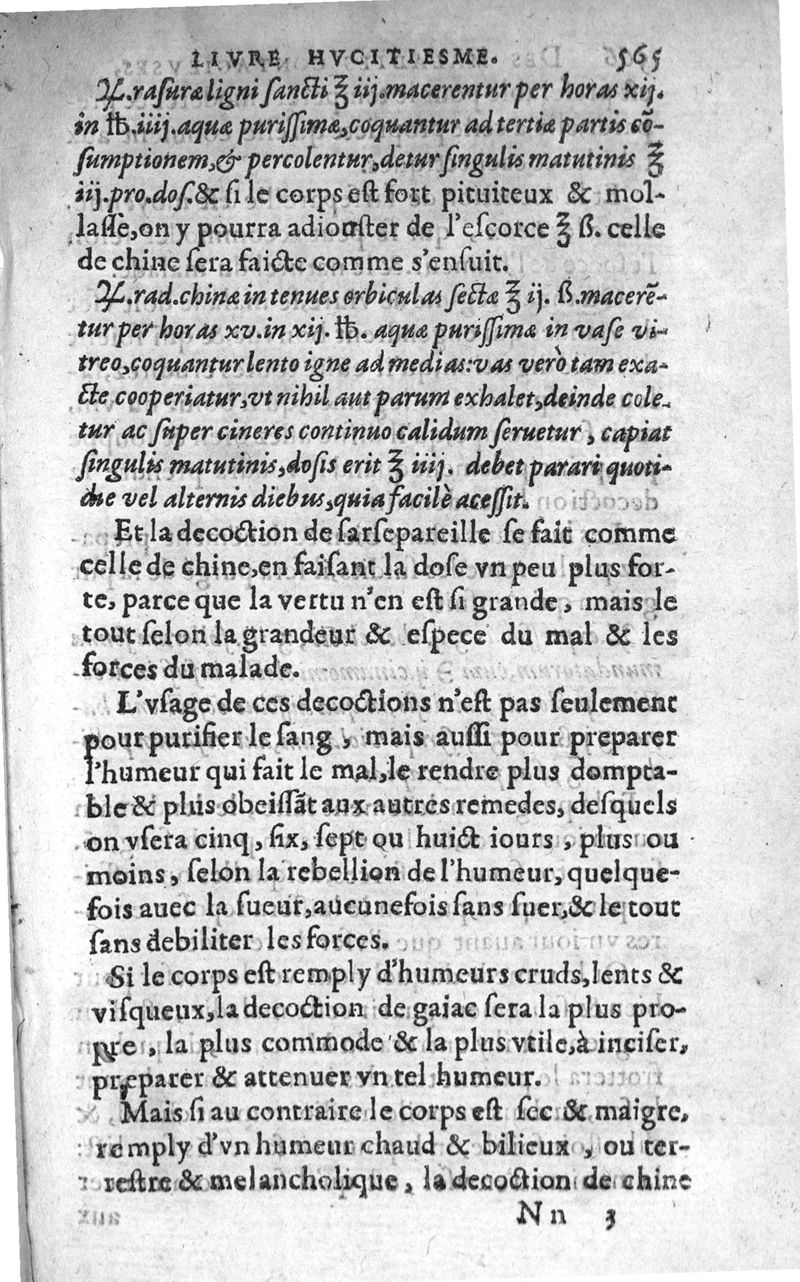 LIVRE HVCITIESME. 565
℞. rasuræ ligni sancti ℥ iij. macerentur per horas xij.
in ℔. iiij. aquæ purissimæ, coquantur ad tertiæ partis cō-
sumptionem, & percolentur, detur singulis matutinis ℥
iij. pro. dos. & si le corps est fort pituiteux & mol-
lasse, on y pourra adiouster de l'escorce ℥ ß. celle
de chine sera faicte comme s'ensuit.
℞. rad. chinæ in tenues orbiculas sectæ ℥ ij. ß. macerē-
tur per horas xv. in xij. ℔. aquæ purissimæ in vase vi-
treo, coquantur lento igne ad medias: vas verò tam exa-
cte cooperiatur, vt nihil aut parum exhalet, deinde cole-
tur ac super cineres continuo calidum seruetur, capiat
singulis matutinis, dosis erit ℥ iiij. debet parari quoti-
die vel alternis diebus, quia facilè acessit.
Et la decoction de sarsepareille se fait comme
celle de chine, en faisant la dose vn peu plus for-
te, parce que la vertu n'en est si grande, mais le
tout selon la grandeur & espece du mal & les
forces du malade.
L'vsage de ces decoctions n'est pas seulement
pour purifier le sang, mais aussi pour preparer
l'humeur qui fait le mal, le rendre plus dompta-
ble & plus obeissāt aux autres remedes, desquels
on vsera cinq, six, sept ou huict iours, plus ou
moins, selon la rebellion de l'humeur, quelque-
fois auec la sueur, aucunefois sans suer, & le tout
sans debiliter les forces.
Si le corps est remply d'humeurs cruds, lents &
visqueux, la decoction de gaiac sera la plus pro-
pre, la plus commode & la plus vtile, à inciser,
preparer & attenuer vn tel humeur.
Mais si au contraire le corps est sec & maigre,
remply d'vn humeur chaud & bilieux, ou ter-
restre & melancholique, la decoction de chine
Nn 3